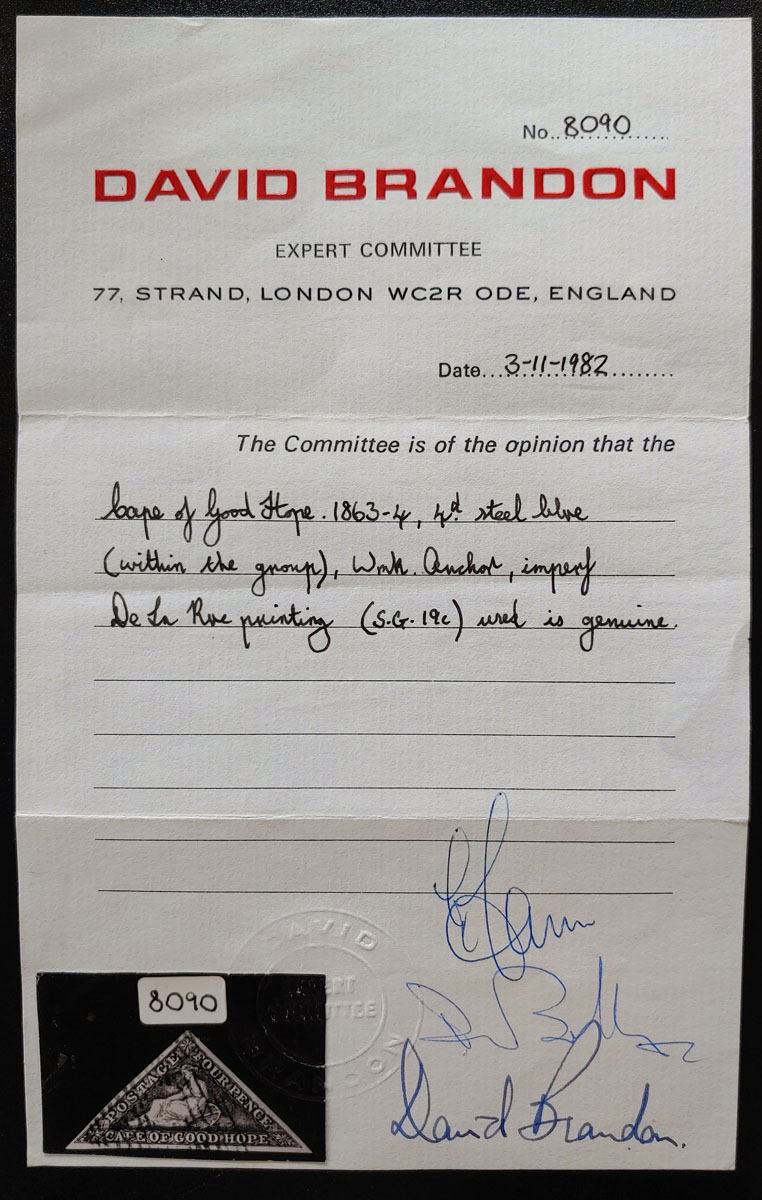 No. 8090
DAVID BRANDON
EXPERT COMMITTEE
77, STRAND, LONDON WC2R ODE, ENGLAND
Date 3-11-1982
The Committee is of the opinion that the
Cape of Good Hope. 1863-4, 4d. steel blue
(within the group), Wmk. Anchor, imperf
De La Rue printing (S.G. 19c) used is genuine.
DAVID
BRANDON
EXPERT
COMMITTEE
8090
POSTAGE
FOURPENCE
CAPE OF GOOD HOPE
David Brandon.